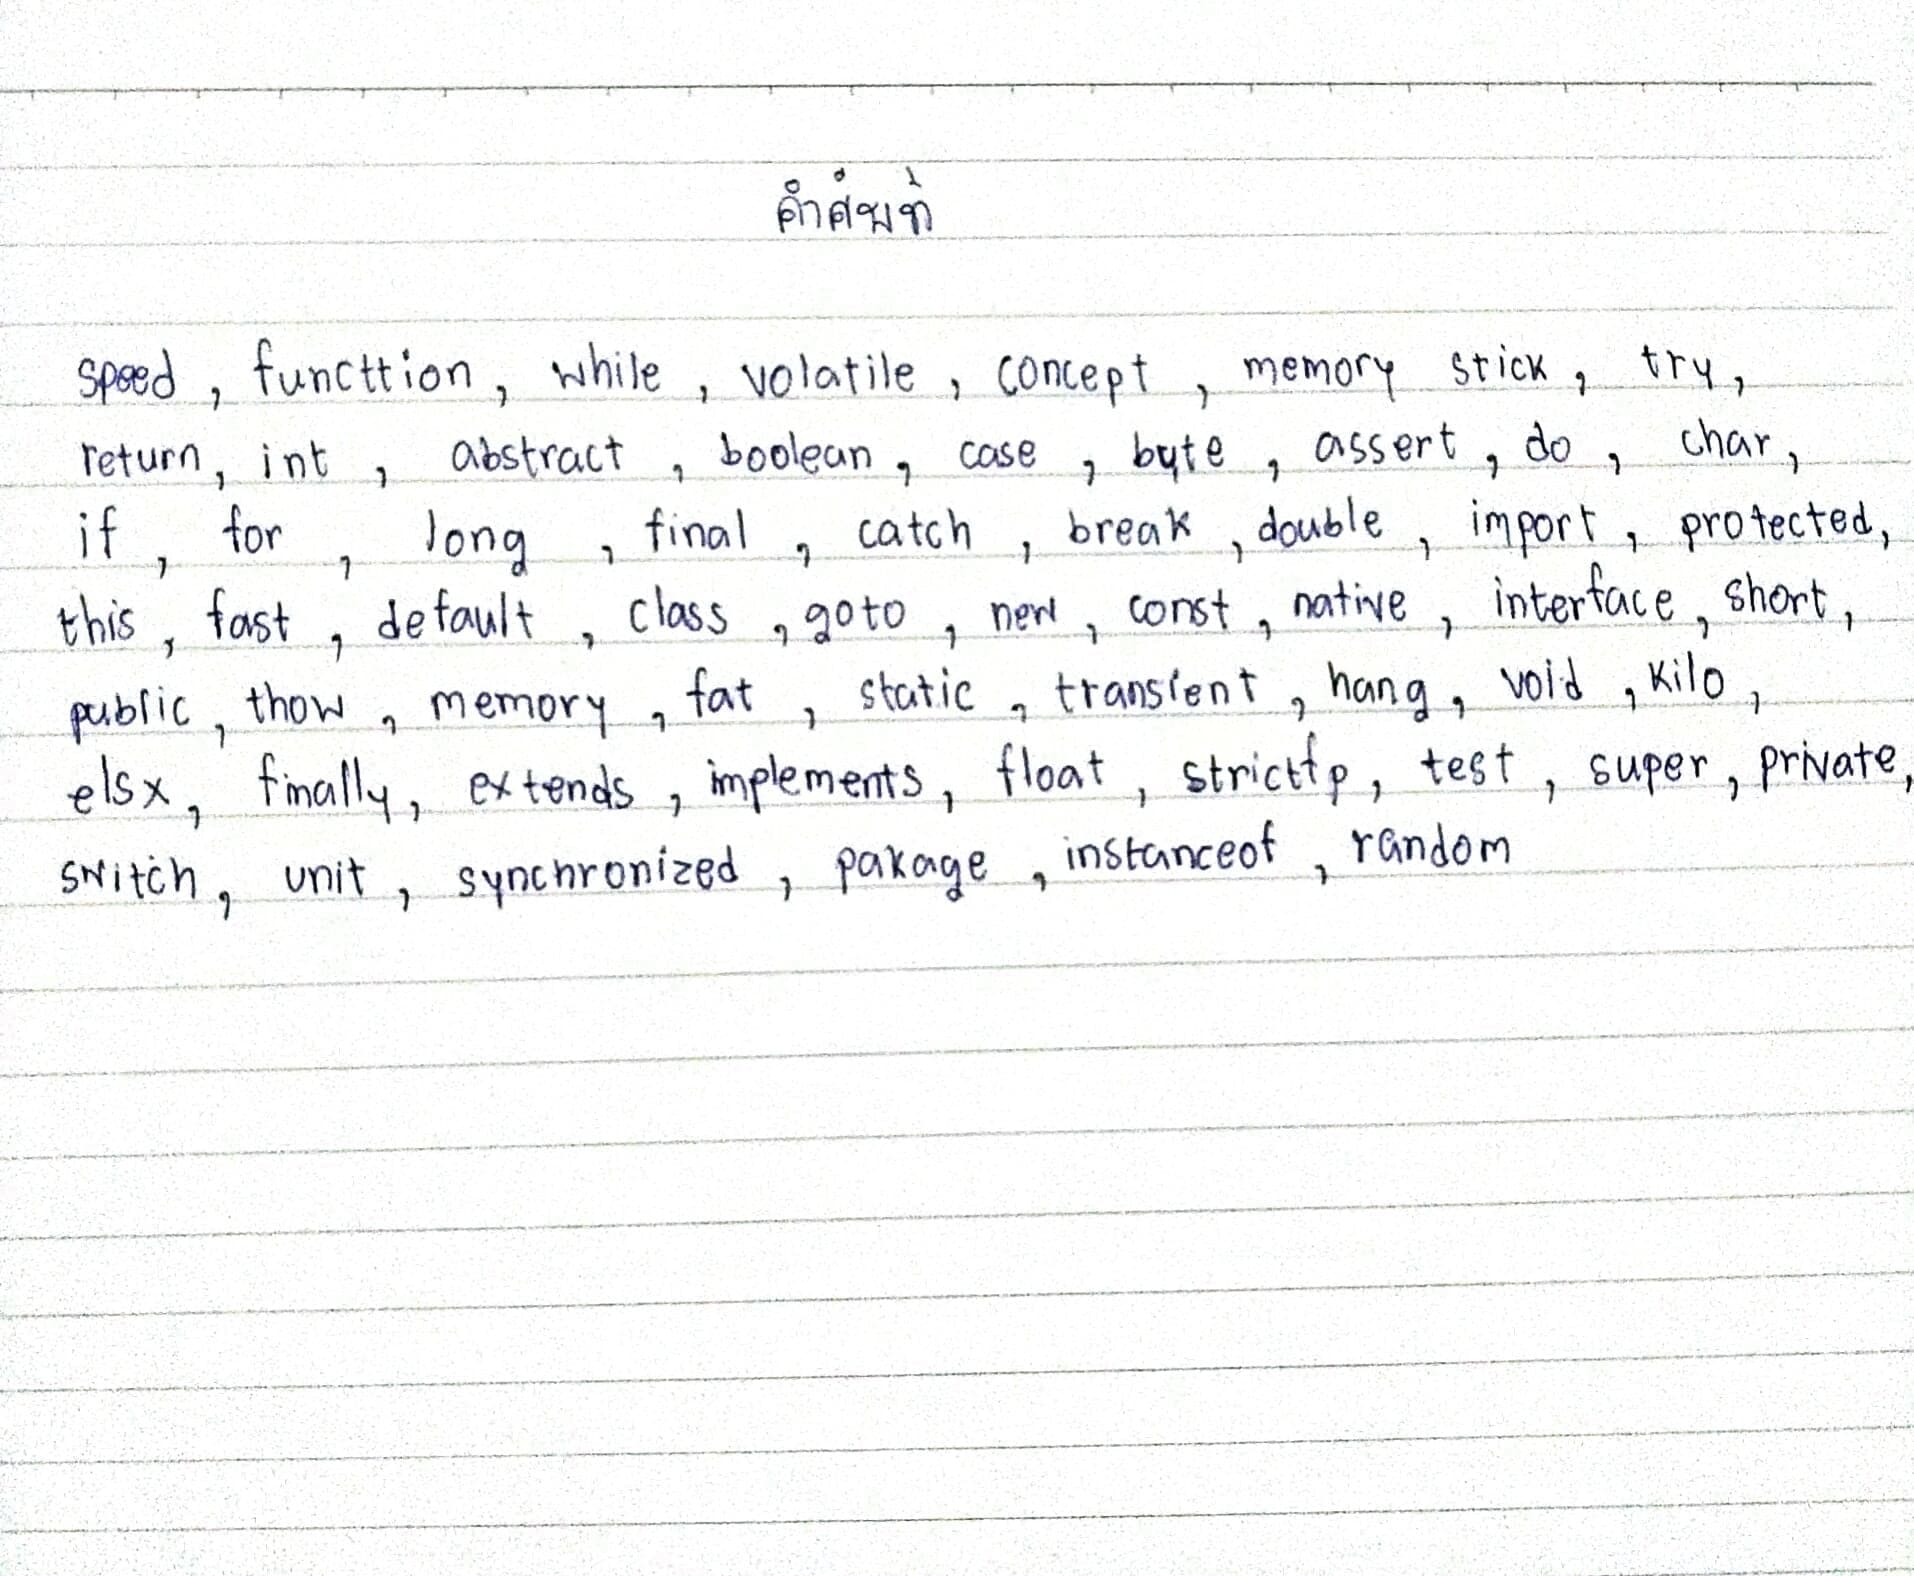 คำศัพท์
speed , functtion , while , volatile , concept , memory stick , try ,
return , int , abstract , boolean , case , byte , assert , do , char ,
if , for , long , final , catch , break , double , import , protected ,
this , fast , default , class , goto , new , const , native , interface , short ,
public , thow , memory , fat , static , transient , hang , void , kilo ,
elsx , finally , extends , implements , float , strictfp , test , super , private ,
switch , unit , synchronized , pakage , instanceof , random